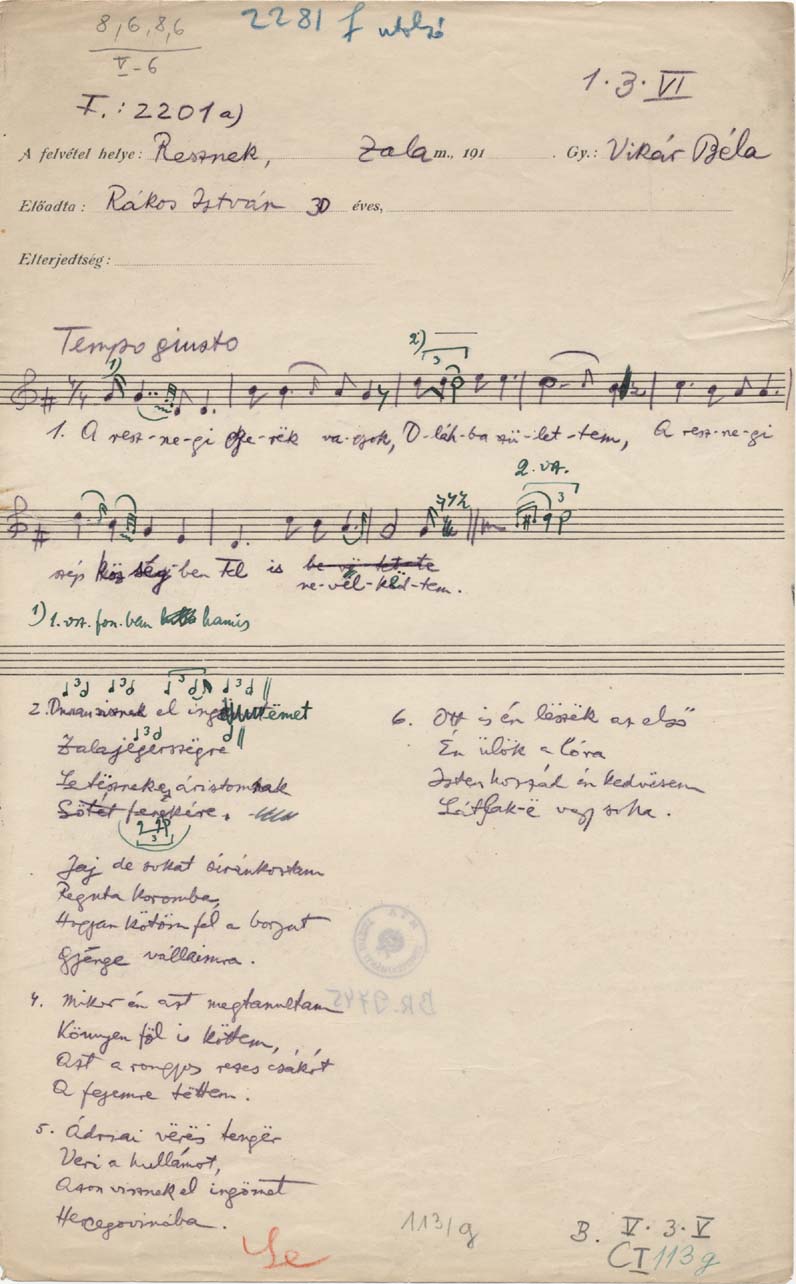 8,6,8,6
V-6
2281 f utolsó
1. 3. VI
F.: 2201a)
A felvétel helye: Resznek, Zala m., 191 . Gy.: Vikár Béla
Előadta: Rákos István 30 éves,
Elterjedtség:
Tempo giusto
1) 2) 3
1. A resz-ne-gi gye-rëk va-gyok, O-láh-ba szü-let-tem, A resz-ne-gi
2. vsz.
3
szép köz ség-ben Fel is
ne-vel-këd-tem.
1) 1. vsz. fon.-ban hamis
3 3 3 3
2. Onnan visznek el
3
Zalajégerszégre
Letësznek
Sötét
2
3
Jaj de sokat siránkoztam
Reguta koromba,
Hogyan kötöm fel a borgyut
Gyënge vállaimra.
4. Mikor én azt megtanultam
Könnyen föl is kötttem,
Azt a rongyos rezes csákót
A fejemre tëttem.
5. Ádrzai vërës tengër
Veri a hullámot,
Azon visznek el ingömet
Hercegovinába.
6. Ott is én lëszëk az első
Én ülök a lóra
Isten hozzád én kedvesem
Látlak-ë vagy soha.
BR. 9745
113/g
Le
B. V. 3. V
CI 113g